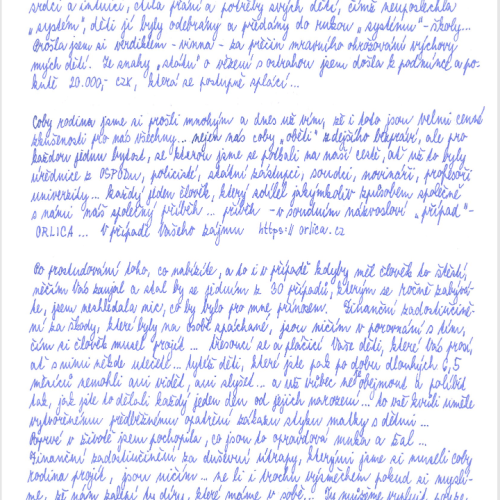 srdci a intuici, ctila přání a potřeby svých dětí, čímž neuposlechla
"systém", děti jí byly odebrány a předány do rukou "systému" - školy...
Prošla jsem si verdiktem - vinna - za příčin mravního ohrožování výchovy
mých dětí. Ze snahy "státu" o vězení s ostrahou jsem došla k podmínce a po-
kutě 20.000,- CZK, která se postupně splácí...
Coby rodina jsme si prošli mnohým a dnes už vím, že i toto jsou velmi cenné
zkušenosti pro nás všechny... nejen nás coby "oběti" zdejšího bezpráví, ale pro
každou jednu bytost, se kterou jsme se potkali na naší cestě, ať už to byly
úřednice z OSPODu, policisté, státní zástupci, soudci, novináři, profesoři
univerzity... každý jeden člověk, který sdílel jakýmkoliv způsobem společně
s námi náš společný příběh... příběh - v soudním názvosloví "případ" -
ORLICA... V případě Vašeho zájmu https:// orlica.cz
Po prostudování toho, co nabízíte, a to i v případě kdyby měl člověk to štěstí,
něčím Vás zaujal a stal by se jedním z 30 případů, kterým se ročně zabývá-
te, jsem neshledala nic, co by bylo pro mne přínosem. Finanční zadostiučině-
ní za škody, které byly na osobě spáchané, jsou ničím v porovnání s tím,
čím si člověk musel projít... Třesoucí se a plačící Vaše děti, které Vás prosí,
ať s nimi někde utečete... tytéž děti, které jste pak po dobu dlouhých 6,5
měsíců nemohli ani vidět, ani slyšet... a už vůbec ne je obejmout a políbit
tak, jak jste to dělali každý jeden den od jejich narození... to vše kvůli uměle
vytvořenému předběžnému opatření zákazu styku matky s dětmi...
Poprvé v životě jsem pochopila, co jsou to opravdová muka a žal...
Finančním zadostiučiněním za duševní útrapy, kterými jsme si museli coby
rodina projít, jsou ničím... ne li i trochu výsměchem pokud si myslí-
me, že nám zalepí ty díry, které máme v sobě...